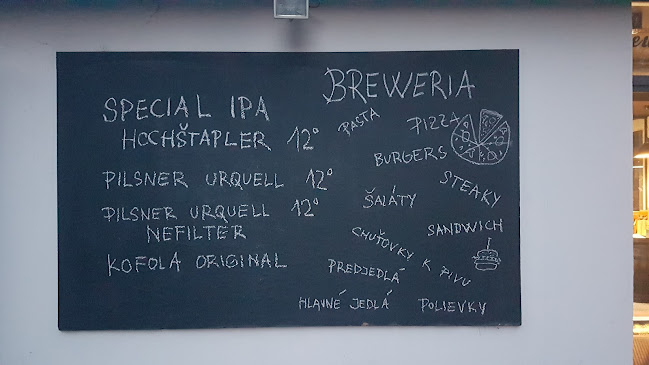 SPECIAL IPA
HOCHŠTAPLER 12°
PILSNER URQUELL 12°
PILSNER URQUELL 12°
NEFILTER
KOFOLA ORIGINAL
BREWERIA
PASTA
PIZZA
BURGERS
STEAKY
ŠALÁTY
SANDWICH
CHUŤOVKY K PIVU
PREDJEDLÁ
HLAVNÉ JEDLÁ
POLIEVKY